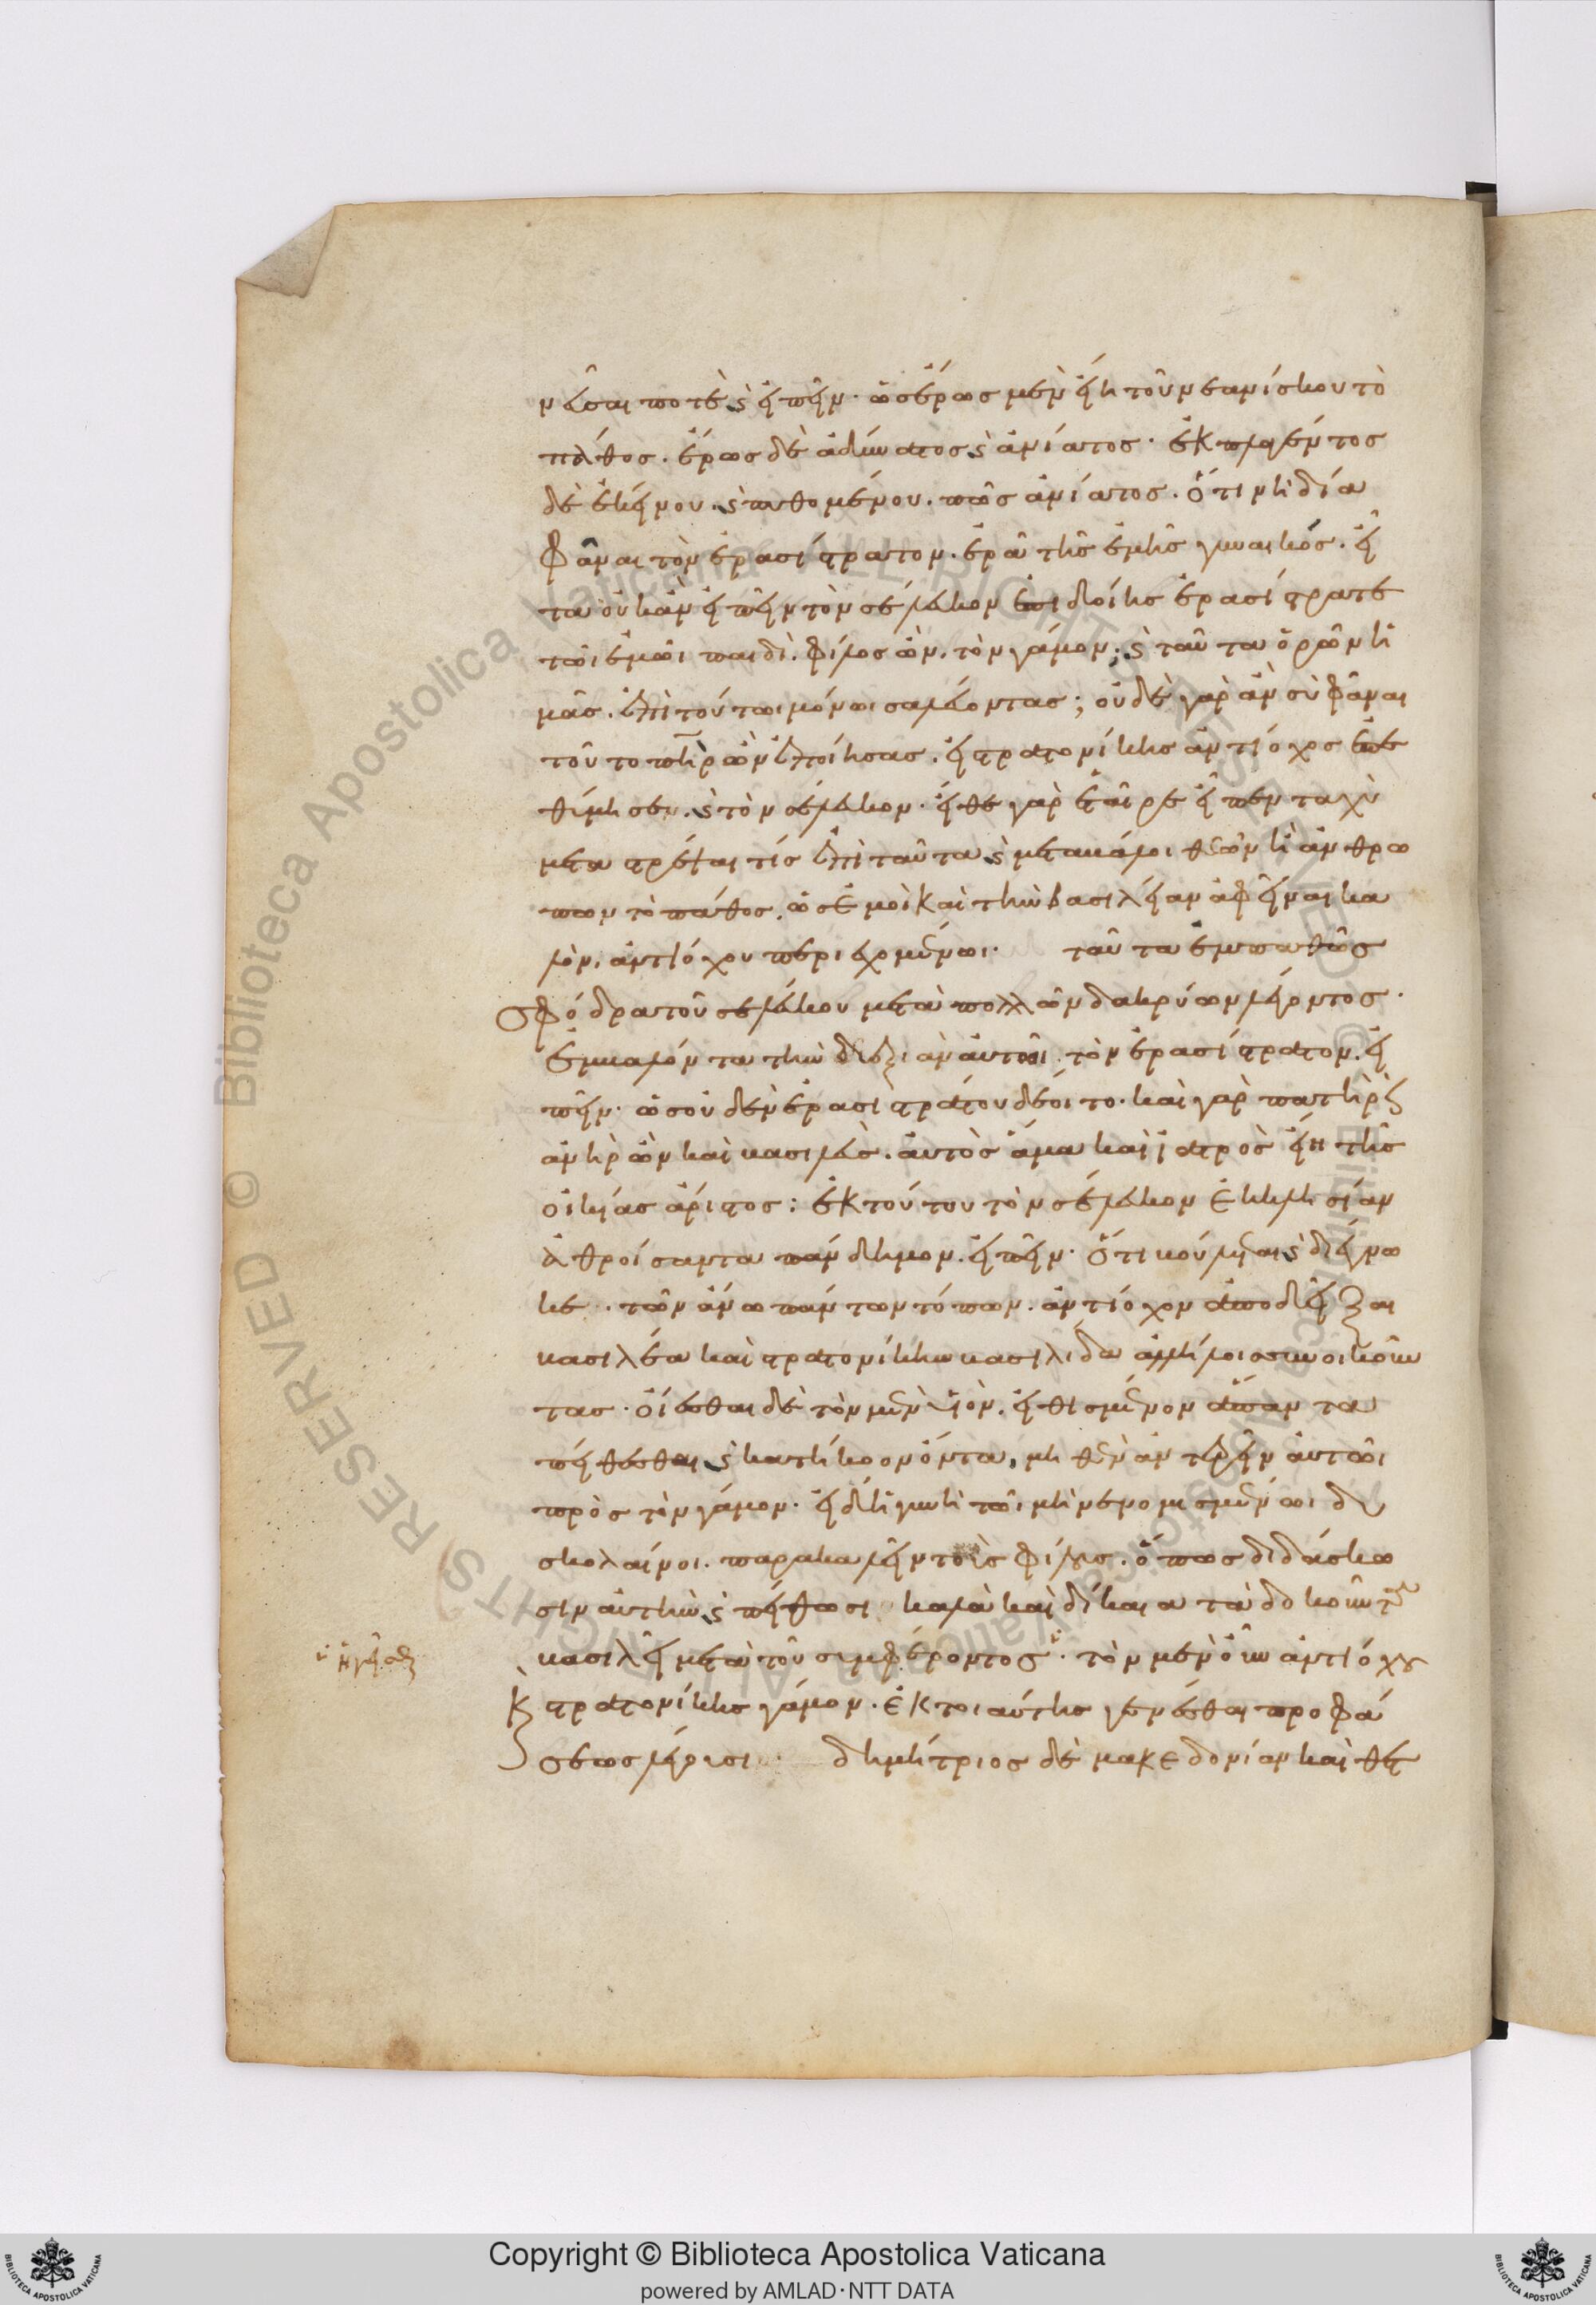 νεῦσαί ποτε καὶ εἰπεῖν· ὡς ἔρως μὲν εἴη τοῦ νεανίσκου τὸ
πάθος. ἔρως δὲ ἀδύνατος καὶ ἀνίατος· ἐκπλαγέντος
δὲ ἐκείνου. καὶ πυθομένου. πῶς ἀνίατος. ὅτι νὴ δία
φάναι τὸν ἐρασίστρατον. ἐρᾶ τῆς ἐμῆς γυναικός. εἶ
τα οὐκ ἂν εἰπεῖν τὸν σέλευκον ἐπιδοίης ἐρασίστρατε
τῶι ἐμῶι παιδὶ. φίλος ὢν. τὸν γάμον; καὶ ταῦτα ὁρῶν ἡ
μᾶς. ἐπὶ τούτωι μόνωι σαλεύοντας; οὐδὲ γὰρ ἂν σὺ φάναι
τοῦτο πατὴρ ὢν ἐποίησας. εἰ στρατονίκης ἀντίοχος ἐπε
θύμησεν. καὶ τὸν σέλευκον· εἴθε γὰρ ἑταῖρε εἶπεν ταχὺ
μεταστρέψαι τίς ἐπὶ ταῦτα καὶ μεταβάλοι θεῶν ἢ ἀνθρώ
πων τὸ πάθος. ὡς ἐμοὶ καὶ τὴν βασιλείαν ἀφεῖναι κα
λὸν. ἀντιόχου περιεχομένωι· ταῦτα ἐμπαθῶς
σφόδρα τοῦ σελεύκου μετὰ πολλῶν δακρύων λέγοντος·
ἐμβαλόντα τὴν δεξιὰν αὐτῶι τὸν ἐρασίστρατον. εἰ
πεῖν· ὡς οὐδὲν ἐρασιστράτου δέοιτο· καὶ γὰρ πατὴρ καὶ
ἀνὴρ ὢν καὶ βασιλεὺς. αὐτὸς ἅμα καὶ ἰατρὸς εἴη τῆς
οἰκίας ἄριστος: ἐκ τούτου τὸν σέλευκον ἐκκλησίαν
ἀθροίσαντα πάνδημον. εἰπεῖν· ὅτι βούλεται καὶ διέγνω
κε. τῶν ἄνω πάντων τόπων. ἀντίοχον ἀποδεῖξαι
βασιλέα καὶ στρατονίκην βασιλίδα ἀλλήλοις συνοικοῦν
τας· οἴεσθαι δὲ τὸν μὲν υἱὸν. εἰθισμένον ἅπαντα
πείθεσθαι καὶ κατήκοον ὄντα, μηθὲν ἀντειπεῖν αὐτῶι
πρὸς τὸν γάμον· εἰ δ' ἡ γυνὴ τῶι μὴ νενομισμένωι δυ
σκολαίνοι. παρακαλεῖν τοὺς φίλους. ὅπως διδάσκω
σιν αὐτὴν καὶ πείθωσι καλὰ καὶ δίκαια τὰ δοκοῦντα
βασιλεῖ μετὰ τοῦ συμφέροντος· τὸν μὲν οὖν ἀντιόχου
ἡγεῖσθαι
καὶ στρατονίκης γάμον. ἐκ τοιαύτης γενέσθαι προφά
σεως λέγουσι· δημήτριος δὲ μακεδονίαν καὶ θετ